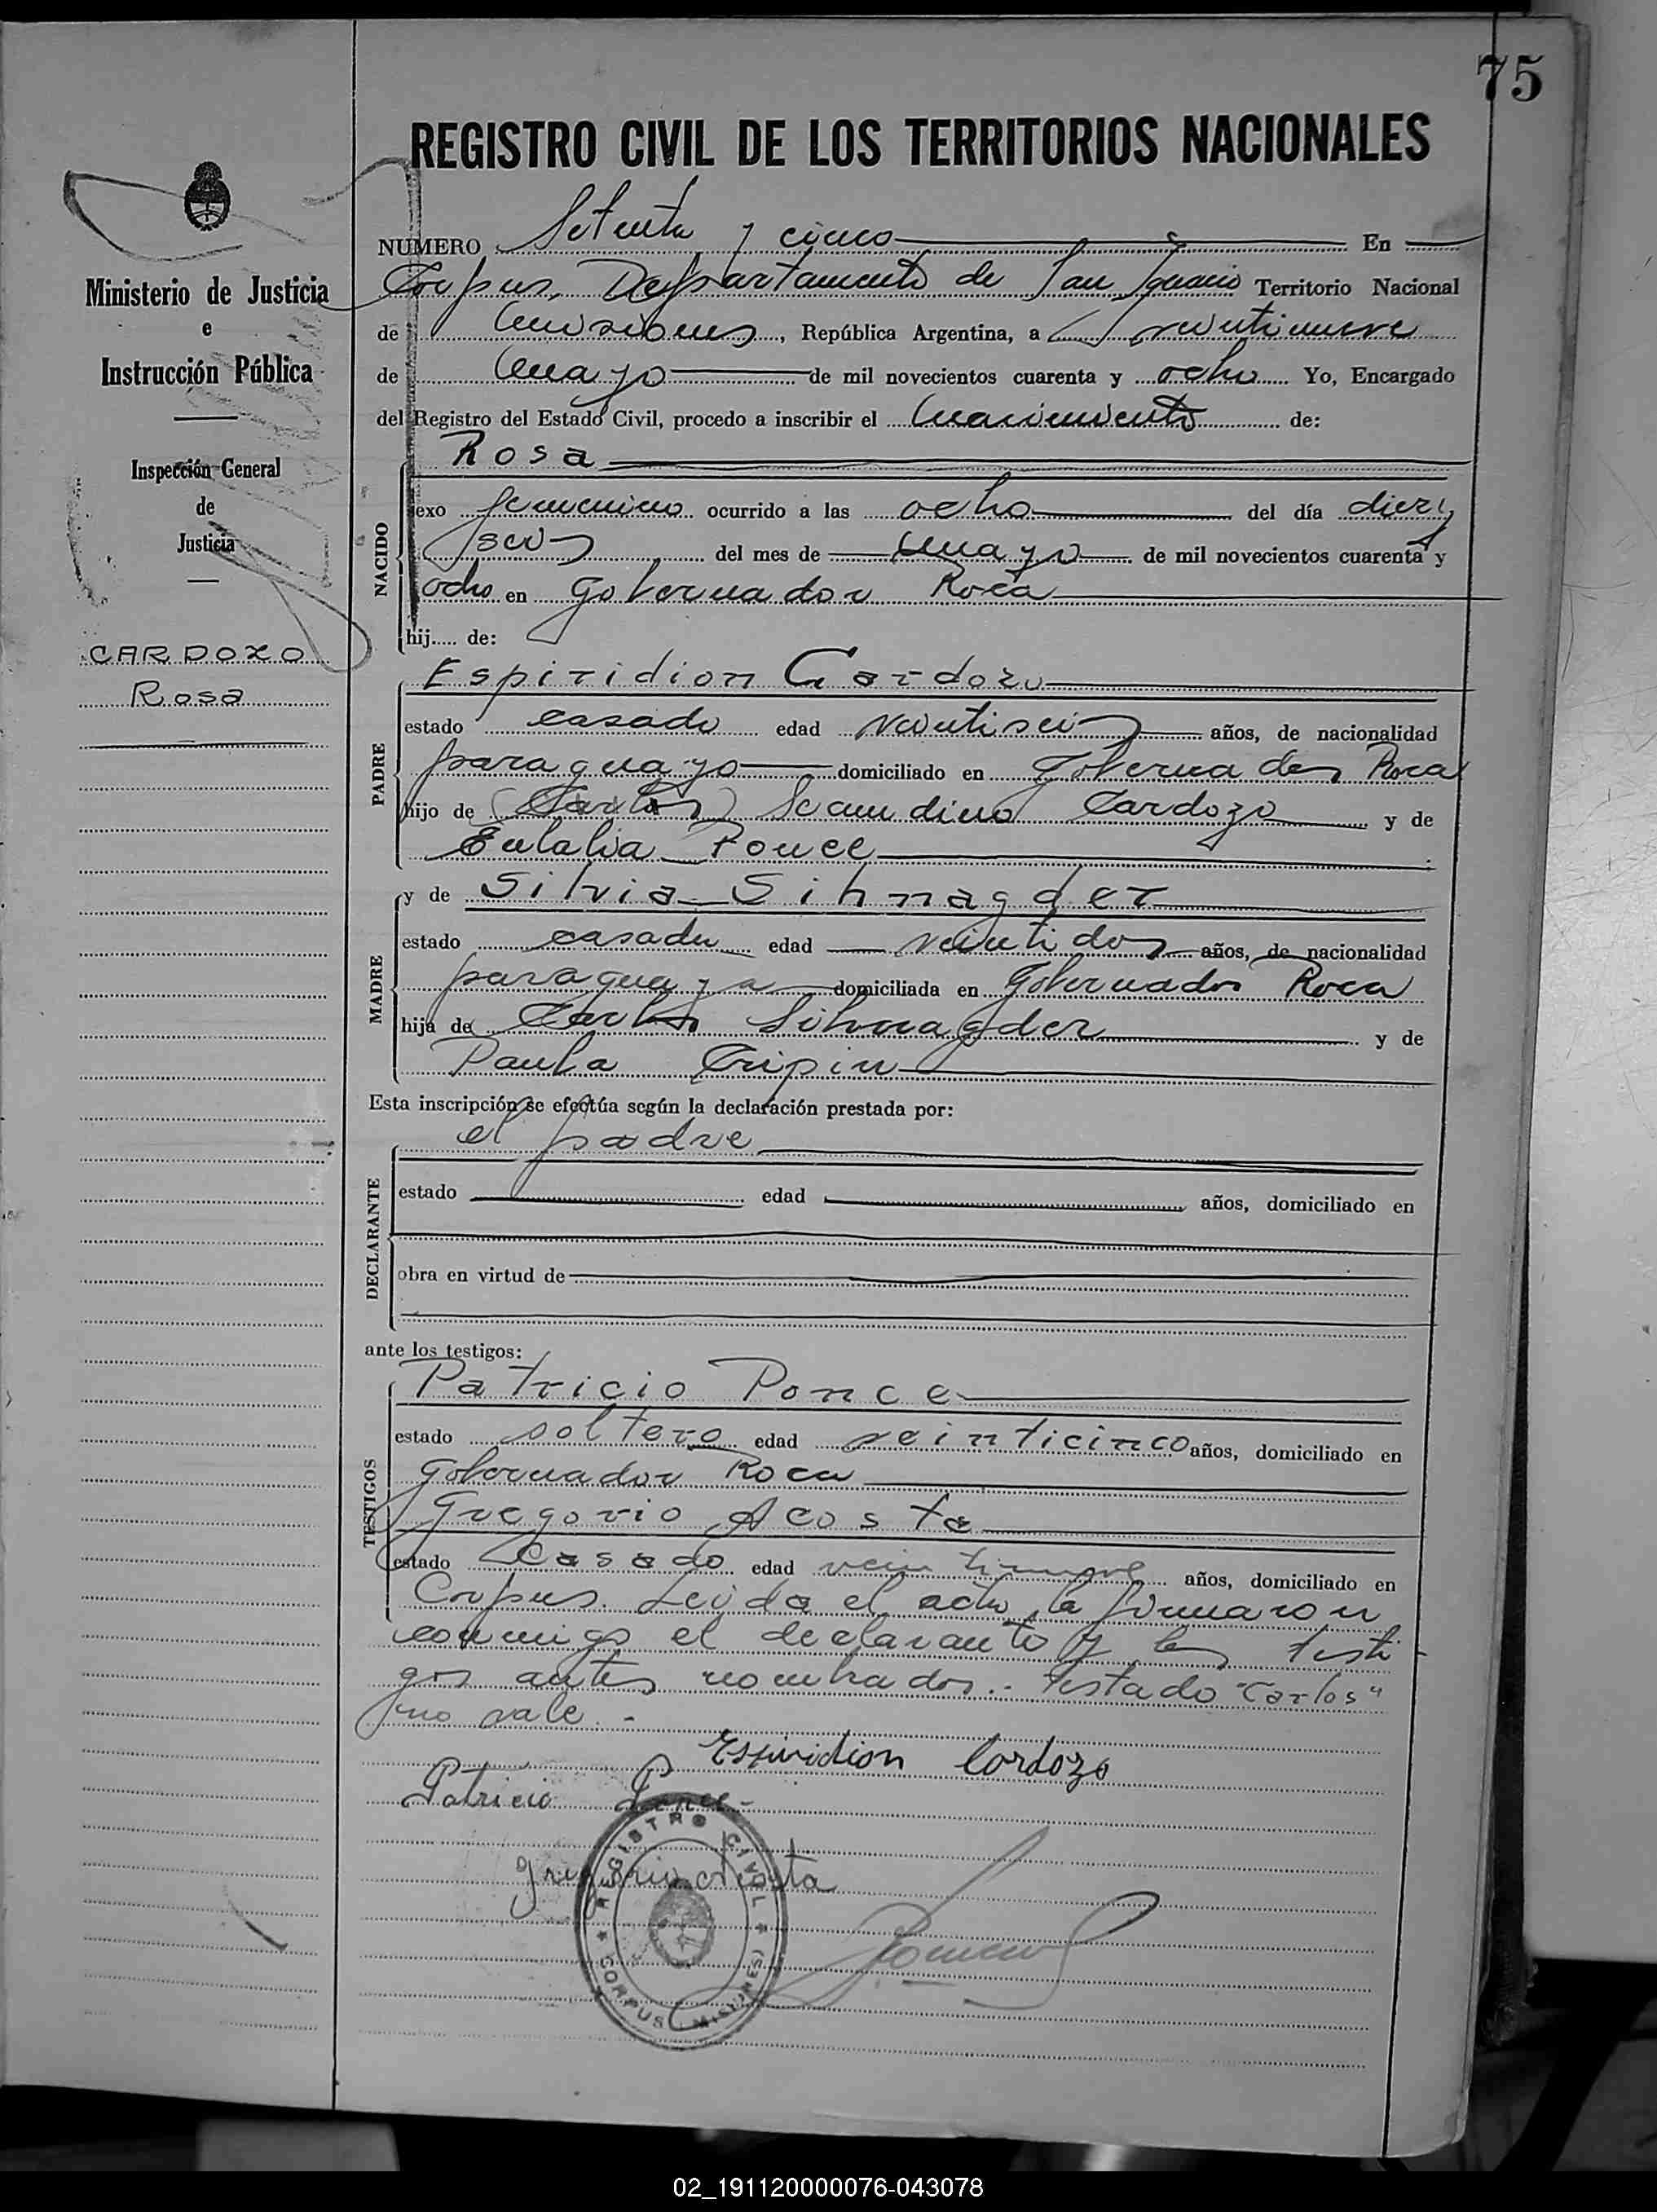 75
REGISTRO CIVIL DE LOS TERRITORIOS NACIONALES
Ministerio de Justicia
e
Instrucción Pública
Inspección General
de
Justicia
CARDOZO
Rosa
NUMERO Setenta y cinco En
Corpus, Departamento de San Ignacio Territorio Nacional
de Misiones, República Argentina, a veintinueve
de mayo de mil novecientos cuarenta y ocho Yo, Encargado
del Registro del Estado Civil, procedo a inscribir el nacimiento de:
Rosa
NACIDO
sexo femenino ocurrido a las ocho del día diez y
seis del mes de mayo de mil novecientos cuarenta y
ocho en Gobernador Roca
hij..... de:
Espiridion Cardozo
PADRE
estado casado edad veintiseis años, de nacionalidad
paraguayo domiciliado en Gobernador Roca
hijo de (Carlos) Secundino Cardozo y de
Eulalia Ponce
MADRE
y de Silvia Sihnagder
estado casada edad veintidos años, de nacionalidad
paraguaya domiciliada en Gobernador Roca
hija de Carlos Sihnagder y de
Paula Cripin
Esta inscripción se efectúa según la declaración prestada por:
el padre
DECLARANTE
estado edad años, domiciliado en
obra en virtud de
ante los testigos:
TESTIGOS
Patricio Ponce
estado soltero edad veinticinco años, domiciliado en
Gobernador Roca
Gregorio Acosta
estado casado edad veintinueve años, domiciliado en
Corpus. Leída el acta, la firmaron
conmigo el declarante y los testi-
gos antes nombrados.- Testado "Carlos"
no vale.-
Espiridion Cardozo
Patricio Ponce
Gregorio Acosta
REGISTRO CIVIL
CORPUS (MISIONES)
02_191120000076-043078